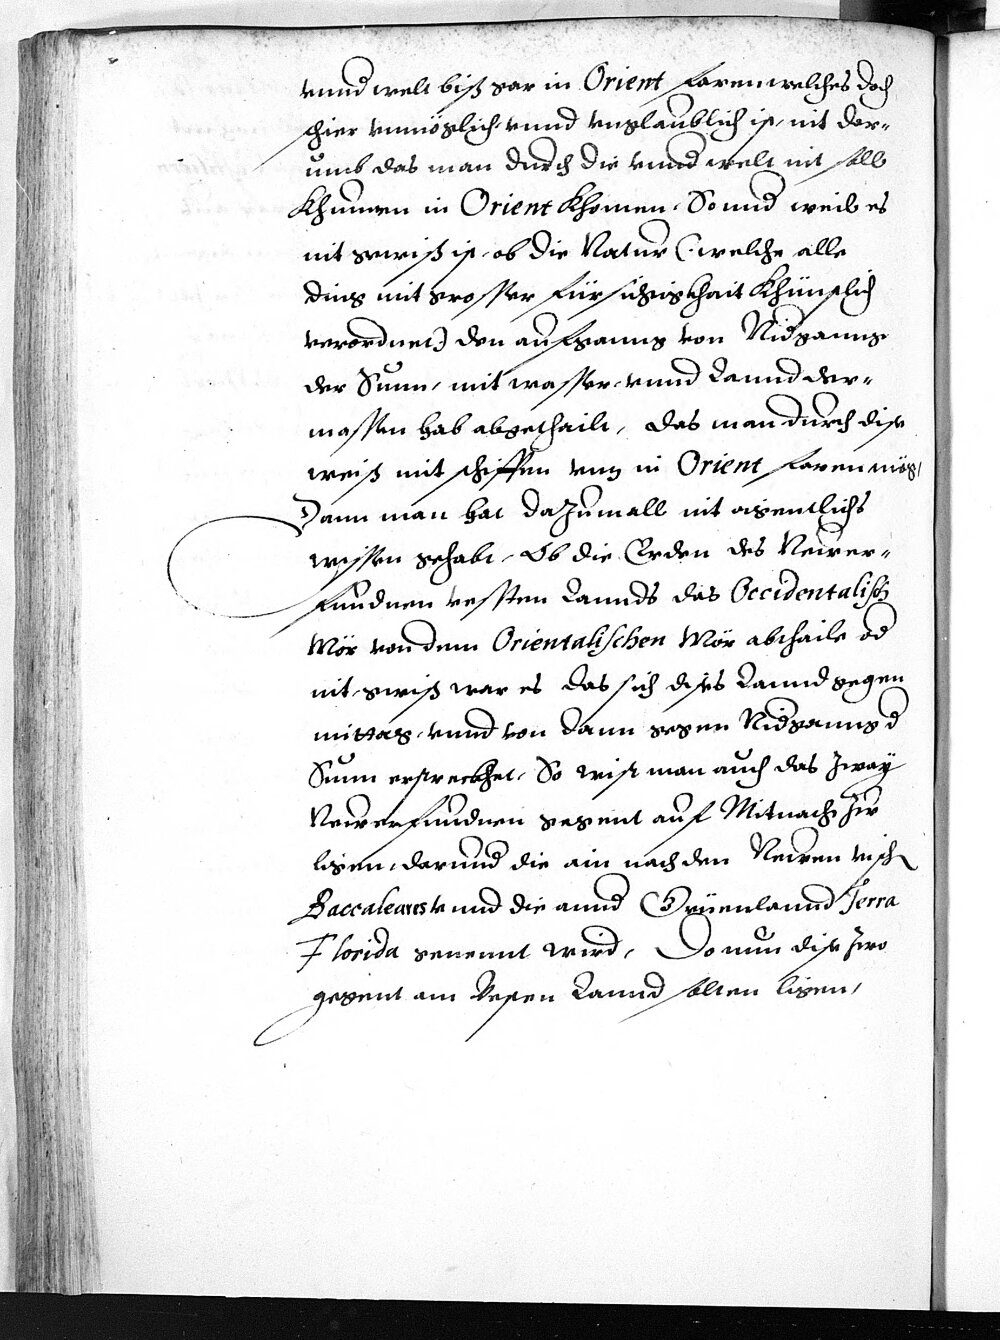 vnnd welt biß gar in Orient faren welches doch
schier vnmöglich vnnd vnglaublich ist, nit dar-
umb das man durch die vnnd welt nit soll
Khünnen in Orient Khomen. Sonnd weil es
nit gewiß ist, ob die Natur (welche alle
ding mit grosser fürsichtigkhait Khünstlich
verordnet) den aufgang von Nidgang
der Sunn, mit wasser vnnd Lannd der-
massen hab abgethailt, das man durch dise
weiß mit schiffen vmb in Orient faren mög,
Dann man hat dazumall nit aigentlichs
wissen gehabt, Ob die Erden des Newer-
fundnen vessten Lannds das Occidentalisch
Mör von dem Orientalischen Mör abthaile od
nit, gwiß war es das sich dises Lannd gegen
mittag, vnnd von dann gegen Nidgang d
Sunn erstreckhet, So wist man auch das zway
Newerfundnen gegent auf Mitnacht zu
ligen, darund die ain nach den Newen visch
Baccaleaus vnnd die annd Grüenlannd Terra
Florida genennt wird, Do nun dise zwo
gegent am vesten Lannd solten ligen,